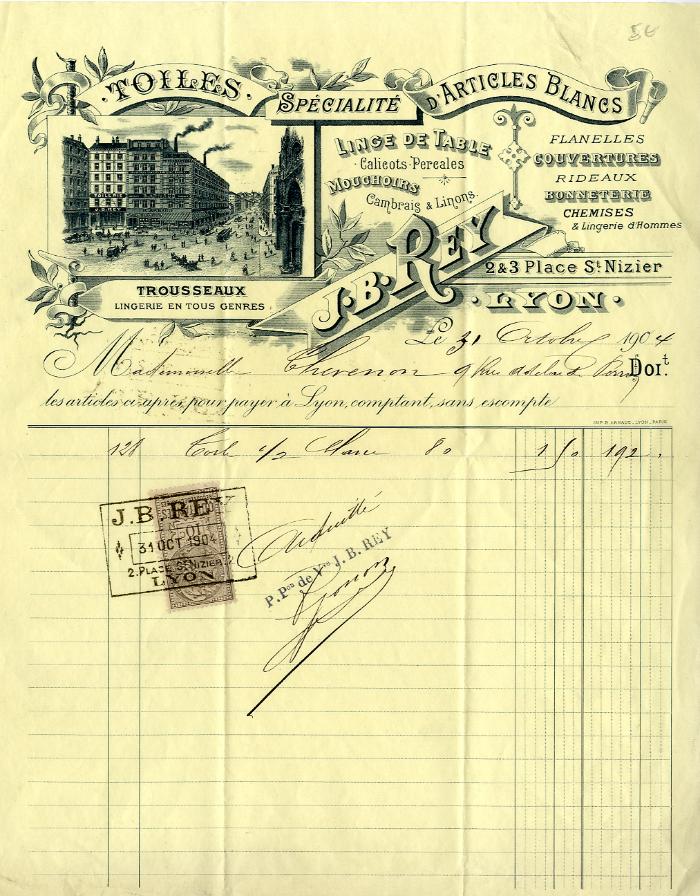 5€
TOILES
SPÉCIALITÉ
D'ARTICLES BLANCS
LINGE DE TABLE
Calicots-Percales
MOUCHOIRS
Cambrais & Linons.
FLANELLES
COUVERTURES
RIDEAUX
BONNETERIE
CHEMISES
& Lingerie d'Hommes
TROUSSEAUX
LINGERIE EN TOUS GENRES.
J.B. REY
2 & 3 Place St Nizier
LYON.
Le 31 Octobre 1904
Mademoiselle Thevenon 9 Rue Adelaide Perrin Doit
les articles ci-après, pour payer à Lyon, comptant, sans escompte
IMP. B. ARNAUD. LYON_PARIS
128 Toile c/2 Marie 80 1 50 192.
J.B. REY
01
31 OCT 1904
2. PLACE St NIZIER. 2
LYON
Acquitté
P. Pon de Vve J. B. REY